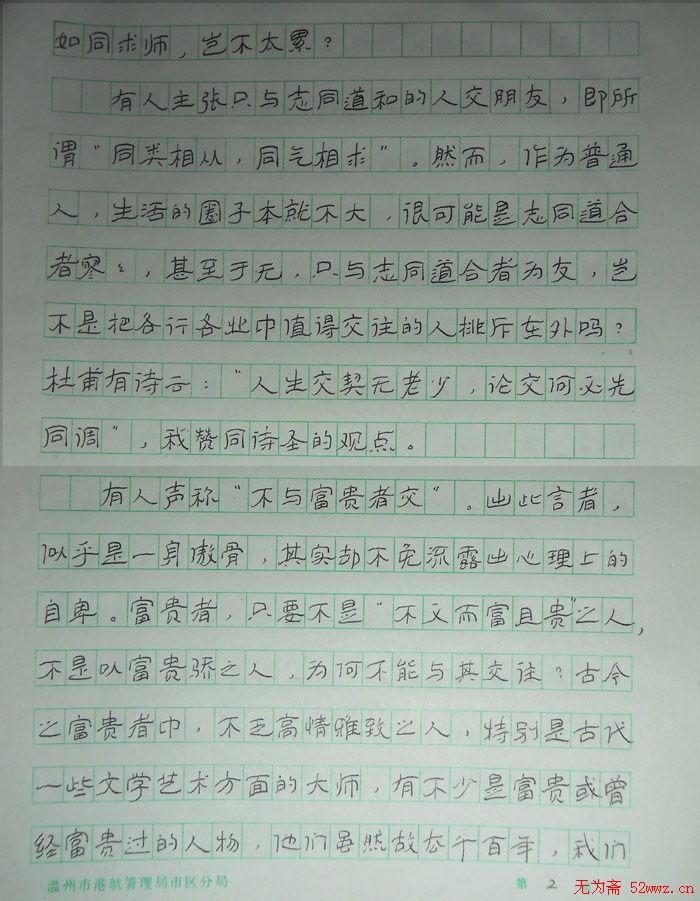 如同求师，岂不太累？
有人主张只与志同道和的人交朋友，即所
谓“同类相从，同气相求”。然而，作为普通
人，生活的圈子本就不大，很可能是志同道合
者寥々，甚至于无，只与志同道合者为友，岂
不是把各行各业中值得交往的人排斥在外吗？
杜甫有诗云：“人生交契无老少，论交何必先
同调”，我赞同诗圣的观点。
有人声称“不与富贵者交”。出此言者，
似乎是一身傲骨，其实却不免流露出心理上的
自卑。富贵者，只要不是“不义而富且贵”之人，
不是以富贵骄之人，为何不能与其交往？古今
之富贵者中，不乏高情雅致之人，特别是古代
一些文学艺术方面的大师，有不少是富贵或曾
经富贵过的人物，他们虽然故去千百年，我们
温州市港航管理局市区分局 第 2
无为斋 52wwz.cn